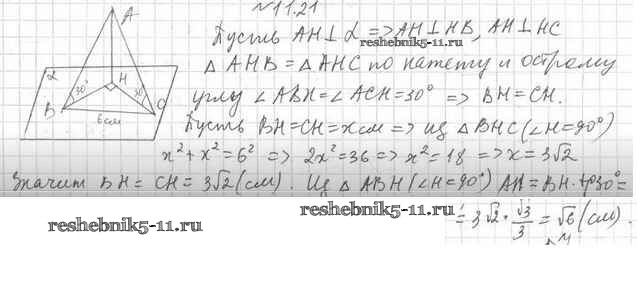 № 11.21
A
Пусть AH⊥α => AH⊥HB, AH⊥HC
reshebnik5-11.ru
α
△ AHB = △ AHC по катету и острому
H
30° 30°
углу ∠ABH = ∠ACH = 30° => BH = CH.
B C
6 см
Пусть BH = CH = x см => из △BHC (∠H = 90°)
x² + x² = 6² => 2x² = 36 => x² = 18 => x = 3√2
Значит BH = CH = 3√2 (см). Из △ ABH (∠H = 90°) AH = BH · tg30° =
reshebnik5-11.ru
= 3√2 · √3/3 = √6 (см).
reshebnik5-11.ru